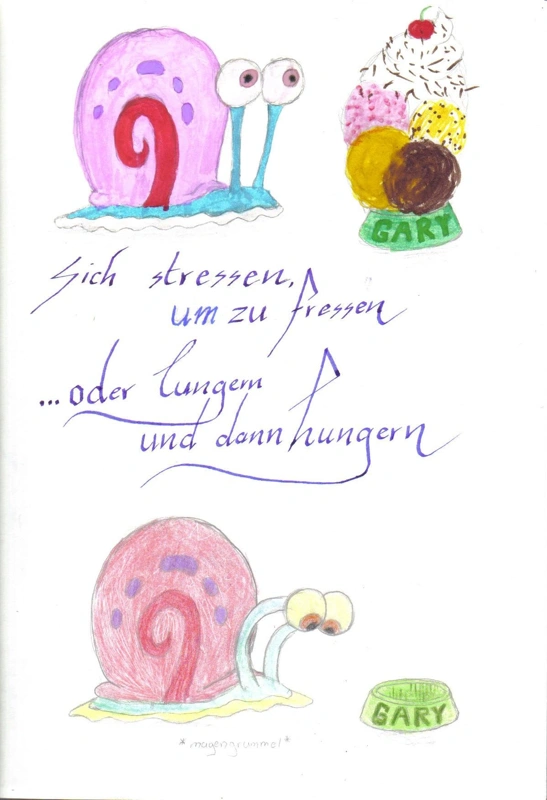 GARY
Sich stressen,
um zu fressen
...oder lungern
und dann hungern
GARY
*magengrummel*